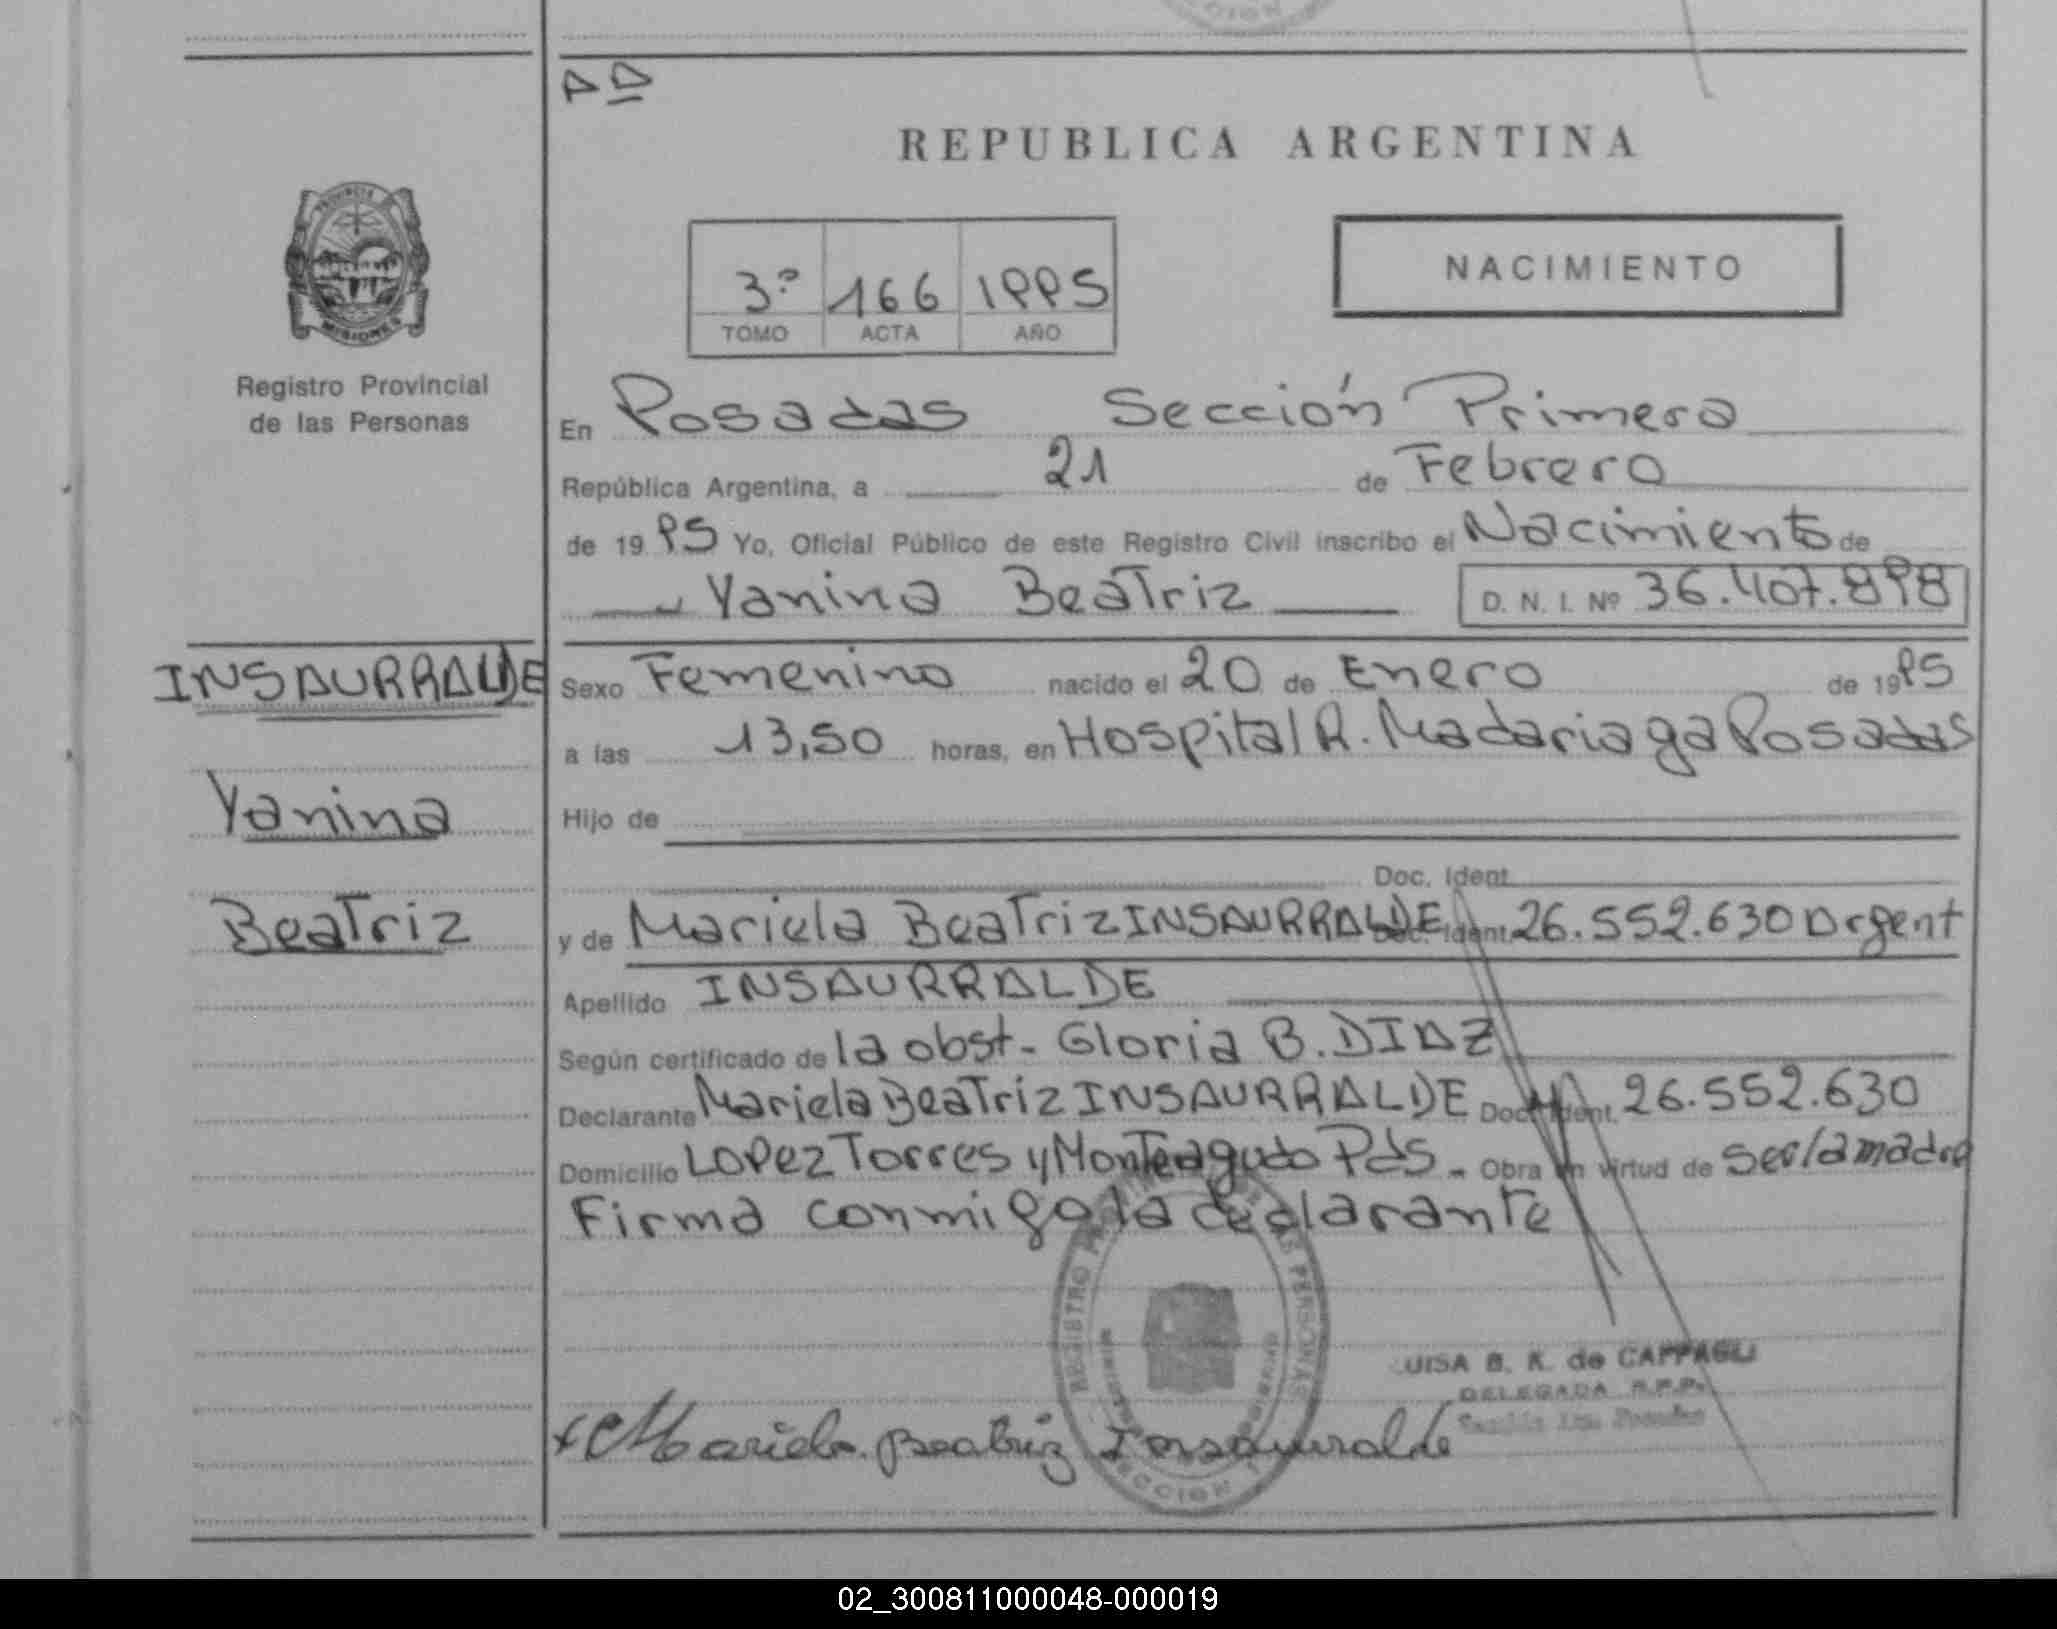 AD
REPUBLICA ARGENTINA
PROVINCIA
MISIONES
Registro Provincial
de las Personas
3º 166 1995
TOMO ACTA AÑO
NACIMIENTO
En Posadas Sección Primera
República Argentina, a 21 de Febrero
de 1995 Yo, Oficial Público de este Registro Civil inscribo el Nacimiento de
Yanina Beatriz D. N. I. Nº 36.407.898
INSAURRALDE
Yanina
Beatriz
Sexo Femenino nacido el 20 de Enero de 1995
a las 13,50 horas, en Hospital R. Madariaga Posadas
Hijo de
Doc. Ident.
y de Mariela Beatriz INSAURRALDE Doc. Ident. 26.552.630 Argent
Apellido INSAURRALDE
Según certificado de la obst. Gloria B. DIAZ
Declarante Mariela Beatriz INSAURRALDE Doc. Ident. 26.552.630
Domicilio Lopez Torres y Monteagudo Pdas. Obra en virtud de ser la madre
Firma conmigo la declarante
REGISTRO PROVINCIAL DE LAS PERSONAS
SECCION 1
LUISA B. K. de CAPPAGLI
DELEGADA R.P.P.
Sección 1ra. Posadas
Mariela Beatriz Insaurralde
02_300811000048-000019